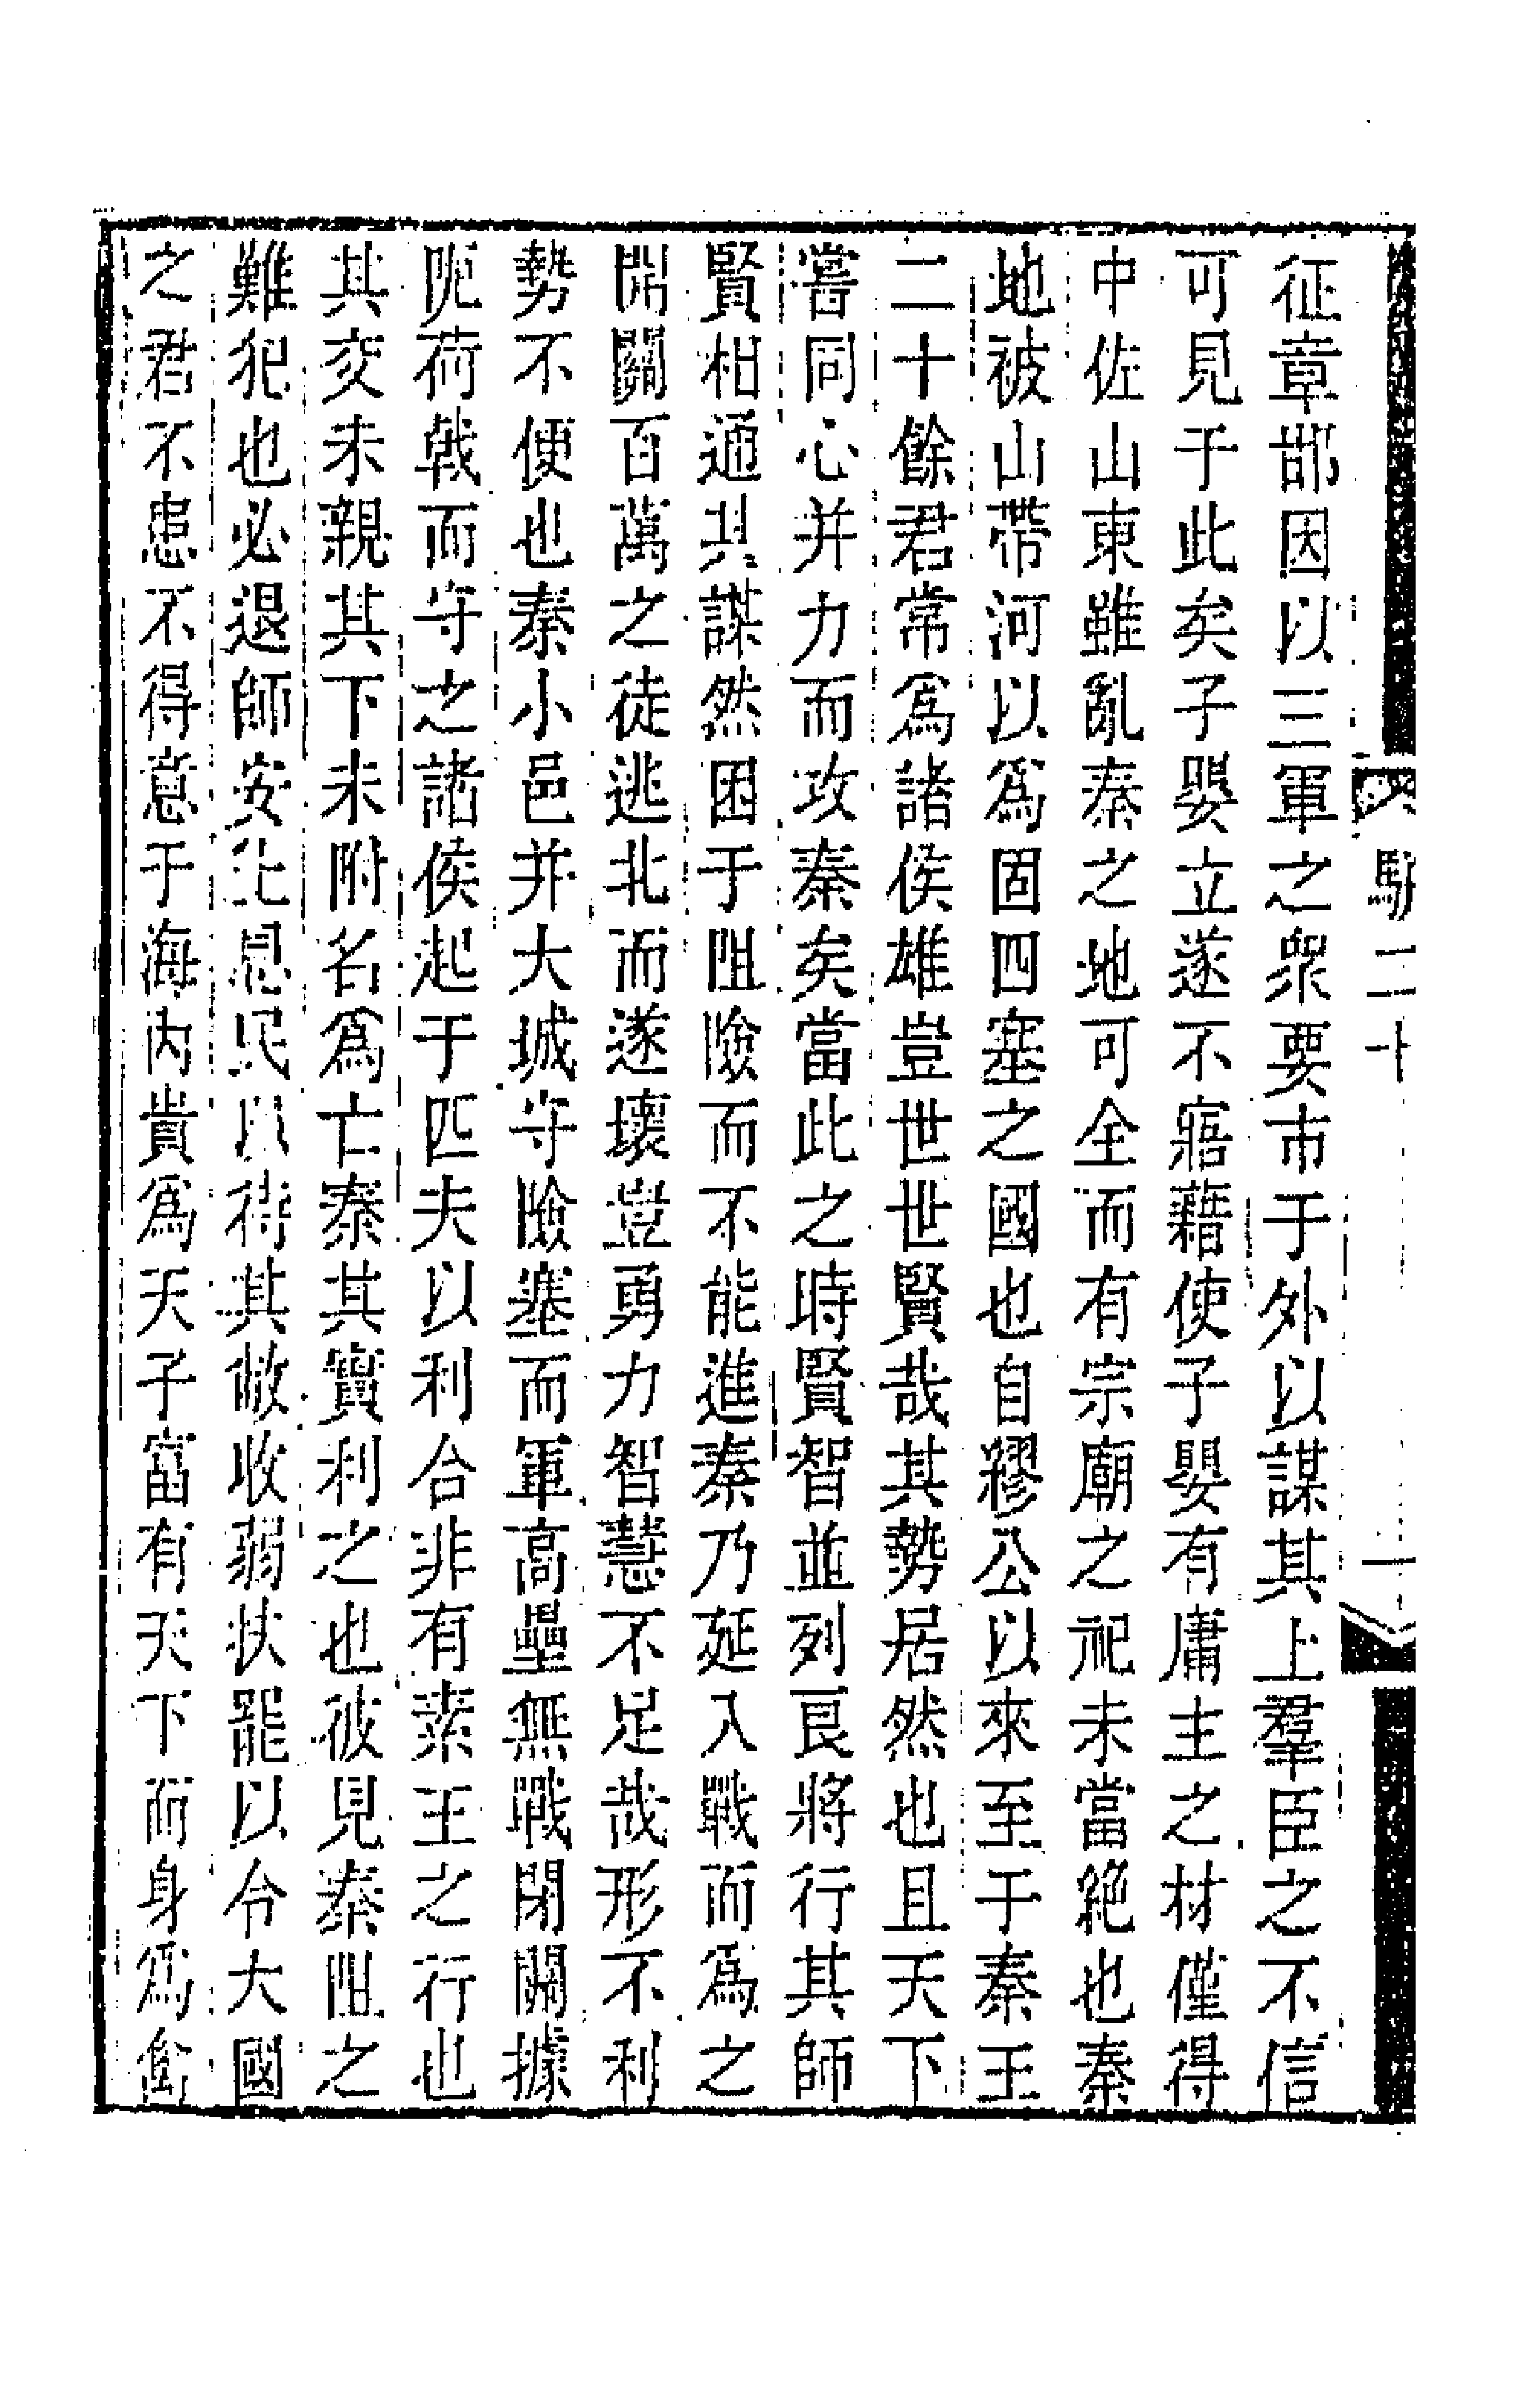 征章邯因以三軍之衆要市于外以謀其上羣臣之不信
可見于此矣子嬰立遂不寤藉使子嬰有庸主之材僅得
中佐山東雖亂秦之地可全而有宗廟之祀未當絶也秦
地被山帶河以爲固四塞之國也自繆公以來至于秦王
二十餘君常爲諸侯雄豈世世賢哉其勢居然也且天下
嘗同心并力而攻秦矣當此之時賢智並列良將行其師
賢相通其謀然困于阻險而不能進秦乃延入戰而爲之
開關百萬之徒逃北而遂壞豈勇力智慧不足哉形不利
勢不便也秦小邑并大城守險塞而軍高壘無戰閉關據
阨荷戟而守之諸侯起于匹夫以利合非有素王之行也
其交未親其下未附名爲亡秦其實利之也彼見秦阻之
難犯也必退師安土息民以待其敝收弱扶罷以令大國
之君不患不得意于海内貴爲天子富有天下而身爲禽
二十